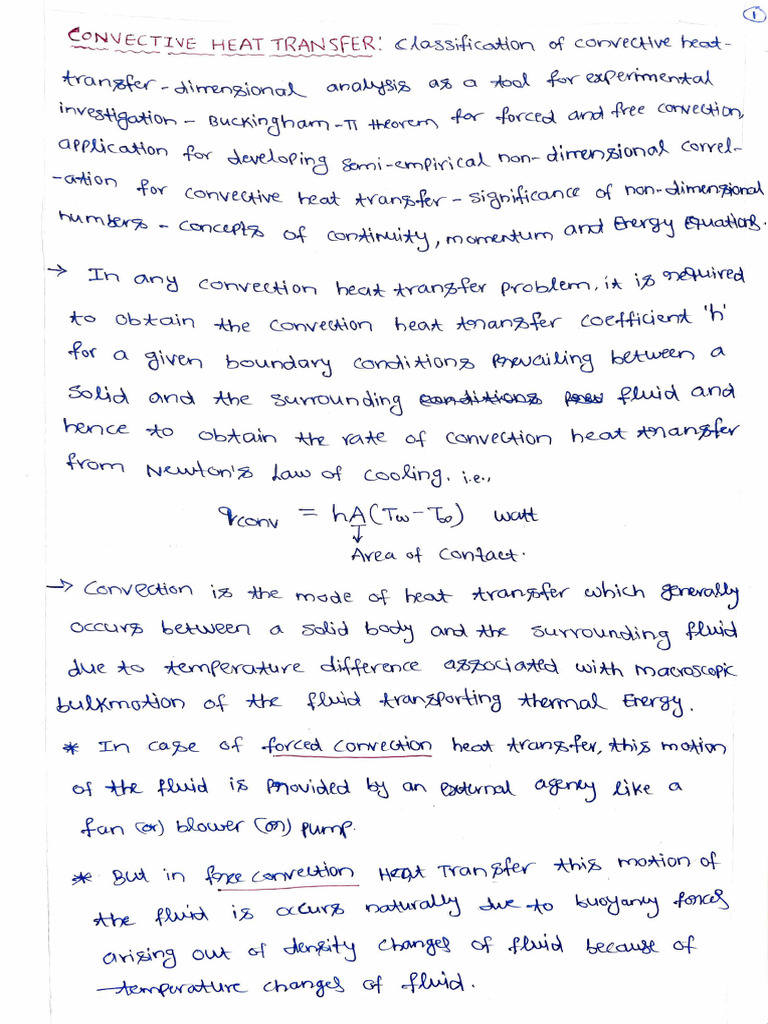 1
CONVECTIVE HEAT TRANSFER: Classification of convective heat-
transfer - dimensional analysis as a tool for experimental
investigation - Buckingham-π theorem for forced and free convection,
application for developing semi-empirical non-dimensional correl-
-ation for convective heat transfer - significance of non-dimensional
numbers - concepts of continuity, momentum and Energy Equations.
→ In any convection heat transfer problem, it is required
to obtain the convection heat transfer coefficient 'h'
for a given boundary conditions prevailing between a
solid and the surrounding conditions fluid and
hence to obtain the rate of convection heat transfer
from Newton's Law of cooling. i.e.,
qconv = hA(Tw - T∞) watt
↓
Area of contact.
→ Convection is the mode of heat transfer which generally
occurs between a solid body and the surrounding fluid
due to temperature difference associated with macroscopic
bulkmotion of the fluid transporting thermal Energy.
* In case of forced convection heat transfer, this motion
of the fluid is provided by an external agency like a
fan (or) blower (or) pump.
* But in free convection Heat Transfer this motion of
the fluid is occurs naturally due to buoyancy forces
arising out of density changes of fluid because of
temperature changes of fluid.